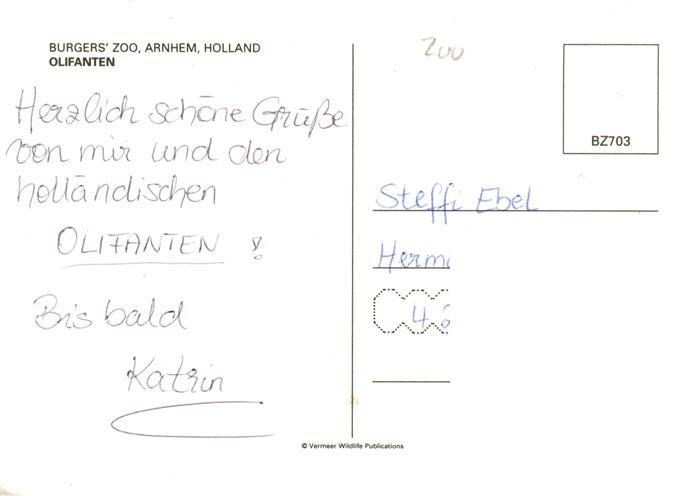 BURGERS' ZOO, ARNHEM, HOLLAND
OLIFANTEN
Herzlich schöne Grüße
von mir und den
holländischen
OLIFANTEN !
Bis bald
Katrin
Zoo
BZ703
Steffi Ebel
Herm
4
© Vermeer Wildlife Publications